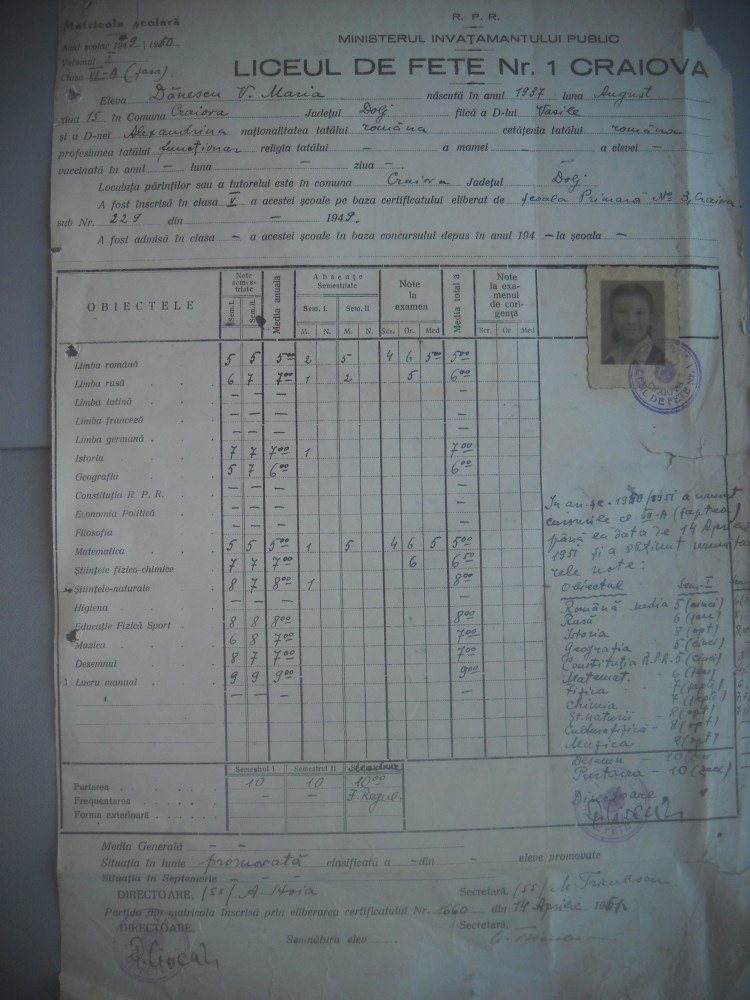 R. P. R.
Matricola școlară
MINISTERUL INVATAMANTULUI PUBLIC
Anul școlar 1949 / 1950
Volumul I
LICEUL DE FETE Nr. 1 CRAIOVA
Clasa VI-A (șasea).
Eleva Dănescu V. Maria născută în anul 1937 luna August
ziua 15 în Comuna Craiova Județul Dolj fiică a D-lui Vasile
și a D-nei Alexandrina naționalitatea tatălui română cetățenia tatălui română
profesiunea tatălui funcționar religia tatălui — a mamei — a elevei —
vaccinată în anul — luna — ziua —
Locuința părinților sau a tutorelui este în comuna Craiova Județul Dolj
A fost înscrisă în clasa V a acestei școale pe baza certificatului eliberat de Școala Primară No 3, Craiova
sub Nr. 229 din — 1949.
A fost admisă în clasa — a acestei școale în baza concursului depus în anul 194 — la școala —
OBIECTELE
Note semestriale
Sem. I.
Sem. II.
Media anuală
Absențe Semestriale
Sem. I.
Sem. II
M. N. M. N.
Note la examen
Scr. Or. Med
Media total a
Note la examenul de corigență
Scr. Or. Med
Limba română 5 5 5⁰⁰ 2 5 4 6 5⁰⁰ 5⁰⁰
Limba rusă 6 7 7⁰⁰ 1 2 5 6⁰⁰
Limba latină — — — —
Limba franceză — — — —
Limba germană — — — —
Istoria 7 7 7⁰⁰ 1 7⁰⁰
Geografia 5 7 6⁰⁰ 6⁰⁰
Constituția R. P. R. — — — —
Economia Politică — — — —
Filosofia — — — —
Matematica 5 5 5⁰⁰ 1 5 4 6 5 5⁰⁰
Științele fizico-chimice 7 7 7⁰⁰ 6 6⁵⁰
Științele-naturale 8 7 8⁰⁰ 1 8⁰⁰
Higiena — — — —
Educație Fizică Sport 8 8 8⁰⁰ 8⁰⁰
Muzica 6 8 7⁰⁰ 7⁰⁰
Desemnul 8 7 7⁰⁰ 7⁰⁰
Lucru manual 9 9 9⁰⁰ 9⁰⁰
— — — —
CRAIOVA
LICEUL DE FETE Nr. 1
In an. șc. 1950/1951 a urmat
cursurile cl VII-A (șaptea)
până cu data de 14 Aprilie
1951 și a obținut urmatoa
rele note:
Obiectul Sem. I
Română media 5 (cinci)
Rusă 6 (șase)
Istoria 8 (opt)
Geografia 5 (cinci)
Constituția R.P.R. 5 (cinci)
Matemat. 6 (șase)
Fizica 7 (șapte)
Chimia 7 (șapte)
Șt. naturii - 8 (opt)
Cultura fizică - 8 (opt)
Muzica 8 (opt)
Desemn - 10 (zece)
Purtarea - 10 (zece)
Directoare
Semestrul I Semestrul II
Purtarea 10 10 10⁰⁰
Frequentarea — — F. Regul.
Forma exterioară
Media Generală — —
Situația în Iunie promovată clasificată a — din — eleve promovate
Situația în Septembrie — —
DIRECTOARE, (ss) A. Hoia Secretară, (ss) M.
Partida din matricola înscrisă prin eliberarea certificatului Nr. 1660 din 14 Aprilie 1951
DIRECTOARE, Secretară,
Semnătura elev